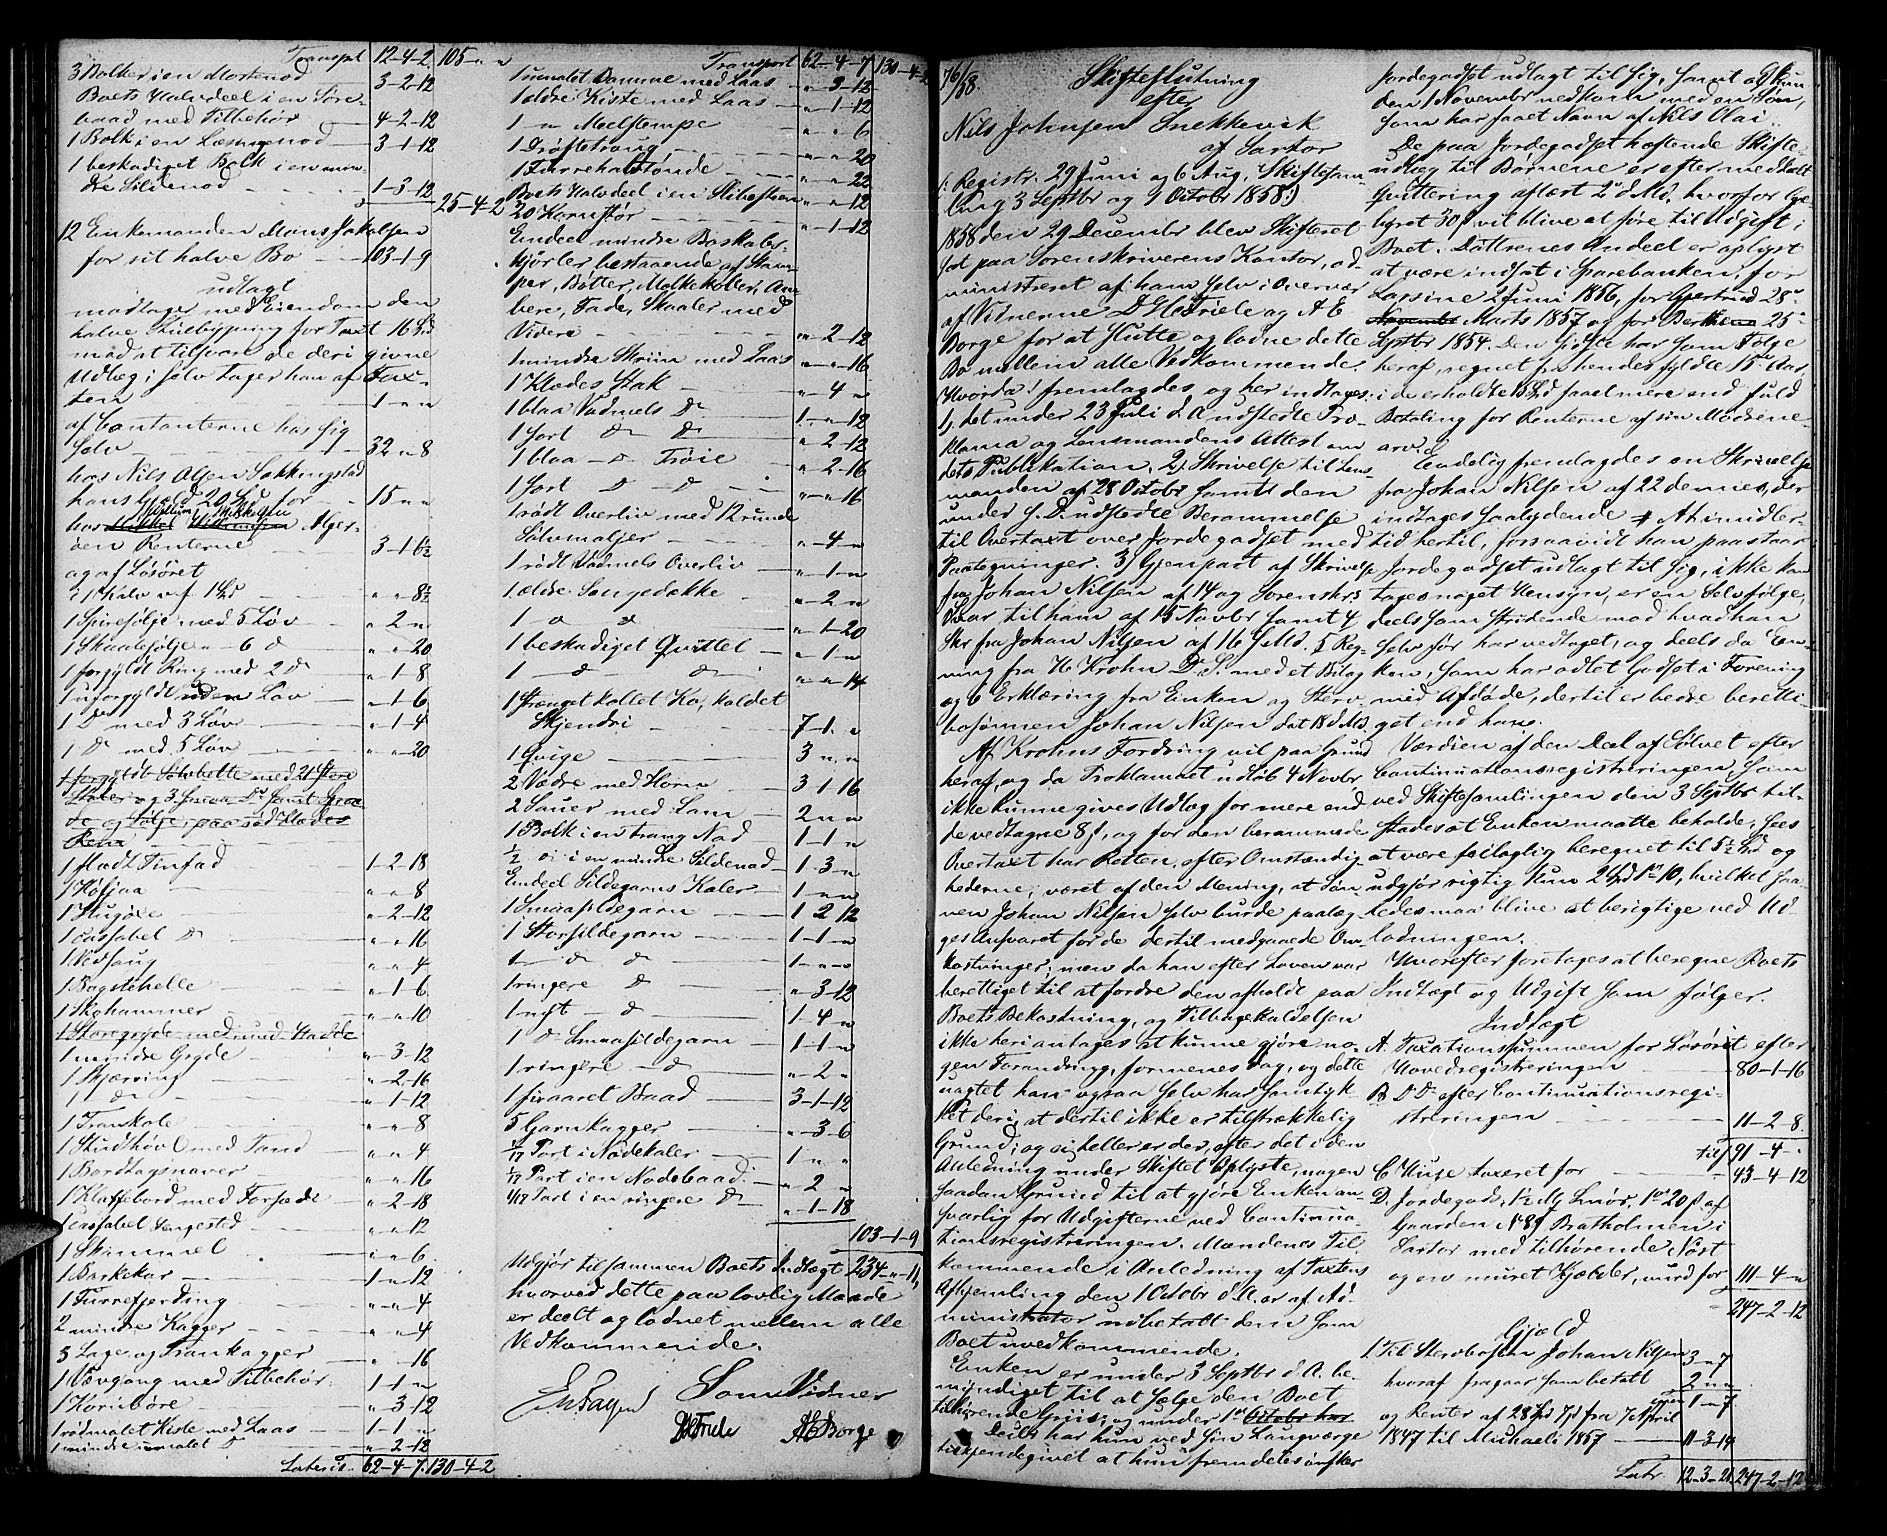 Transpt 12-4-2. 105-"-"
3 Bolker i en Mortenod 3-2-12
Boets Halvdeel i en Føre-
baad med Tilbehør 4-2-12
1 Bolk i en Læsmenod 3-1-12
1 beskadiget Bolk i en min-
dre Sildenod 1-3-12
25-4-2
12 Enkemanden Mons Jakobsen
for sit halve Bo 103-1-9
udlagt
modtager med Eiendom den
halve Huusbygning for Taxt 16
mod at tilsvare de deri givne
Udlæg; selv tager han af Tax-
ten 1-"-"
af Contanterne hos sig
selv 32-"-8
hos Nils Olsen Sekkingstad
hans Gjæld 20 Spd for 15-"-"
hos Mikkelsen Alger-
øen Renterne 3-1-6½
og af Løsøret
1 Kalv "-"-8½
1 Spireføljе med 5 Løv "-2-"
1 Skaalesølje - 6 D "-"-20
1 forgyldt Ring med 2 D "-1-8
1 uforgyldt uden Løv "-1-6
1 D med 3 Løv "-1-4
1 D med 5 Løv "-"-20
1 forgyldt Sølvbelte med 21 større
Stoler og 3 smaa D samt Spæn-
de og Sølje paa rød Klædes
Rem
1 fladt Tinfad 1-2-18
1 Høljaa "-"-8
1 Hugøxe "-2-12
1 cassabel D "-"-16
1 Vedsaug "-"-4
1 Bagstehelle "-1-6
1 Skohammer "-"-10
1 Støregryde med rund Hadde
1 mindre Gryde "-3-12
1 Skjærding "-2-16
1 D "-1-12
1 Trankole "-"-8
1 Studhøvl med Tand "-"-4
1 Bordtagsnaver "-"-16
1 Klaffebord med Forsæde "-2-18
1 cassabel Sengested "-"-12
1 Skammel "-"-6
1 Barkekar "-1-12
1 Furrefjerding "-"-4
2 mindre Kagger "-"-4
3 Lage og Trankagger "-"-16
1 Vævgang med Tilbehør 1-1-"
1 Kornbøre "-3-12
1 rødmalet Kiste med Laas 1-1-"
1 mindre umalet D "-2-12
Lateris 62-4-7. 130-4-2
Transport 62-4-7 130-4-2
1 umalet Damme med Laas "-3-12
1 ældre Kiste med Laas "-1-12
1 " Meelstampe "-"-6
1 Drøftetroug "-"-20
1 Furrehaltønde "-"-22
Boets Halvdeel i en Slibesteen "-"-12
20 Kornstør "-1-12
Endeel mindre Boskabs-
kjørler bestaaende af Stam-
per, Bøtter, Melkekoller, Am-
bere, Fade, Skaaler med
Videre "-2-12
1 mindre Skriin med Laas "-"-16
1 Klædes Stak "-4-"
1 blaa Vadmels D 1-"-12
1 sort D D "-2-12
1 blaa - D Trøie "-2-16
1 sort D - D "-"-16
1 rødt Overliv med 12 runde
Sølvmaljer "-4-"
1 rødt Vadmels Overliv "-1-"
1 ældre Sengedække "-2-"
1 D D "-1-20
1 beskadiget Qvittel "-1-"
1 D D "-"-14
1 strenget kollet Ko, kaldet
Skjendri 7-1-"
1 Qvige 3-"-"
2 Vædre med Horn 3-1-16
2 Sauer med Lam 2-"-"
1 Bolk i en trang Nod 1-1-"
½ D i en mindre Sildenod 1-3-"
Endeel Sildegarns Kaler 1-"-"
1 Smaasildegarn 1-2-12
1 Storsildegarn 1-1-"
1 D D 1-"-"
1 ringere D "-3-12
1 nyt D 1-4-"
1 D Smaasildegarn 1-1-"
1 ringere D "-2-"
1 firaaret Baad 3-1-12
5 Garnkagger "-3-6
1/17 Part i Nodekaler 1-"-"
1/17 Part i en Nodebaad "-2-"
1/17 Part i en ringere D "-1-18
103-1-9
Udgjør tilsammen Boets Indtægt 234-"-11,
hvorved dette paa lovlig Maade
er deelt og lodnet mellem alle
Vedkommende.
Som Vidner
DHFriele AEBorge
76/58. Skifteslutning
efter
Nils Johnsen Snekkevik
af Sartor
(: Registr. 29 Juni og 6 Aug, Skiftesam-
ling 3 Septbr og 9 Octobr 1858:)
1858 den 29 Decembr blev Skifteret
sat paa Sorenskriverens Kontor, ad-
ministreret af ham selv i Overvær
af Vidnerne D H Friele og A E
Borge for at slutte og lodne dette
Bo mellem alle Vedkommende.
Hvorda! fremlagdes og her indtages:
1, det under 23 Juli d. A. udstedte Pro-
klama og Lensmandens Attest om
dets Publikation, 2) Skrivelse til Lens-
manden af 28 Octobr samt den
under s. D. udstedte Berammelse
til Overtaxt over Jordegodset med
Paategninger. 3) Gjenpart af Skrivelse
fra Johan Nilsen af 14 og Sorenskrs
Svar til ham af 15 Novbr samt 4
Skr fra Johan Nilsen af 16 s. Md. 5 Reg-
ning fra H. Krohn D. S. med et Bilag
og 6 Erklæring fra Enken og Stervbo-
bosønnen Johan Nilsen dat 18 d. Md.
Af Krohns Fordring vil paa Grund
heraf, og da Proklamaet udløb 4 Novbr
ikke kunne gives Udlæg for mere end
de vedtagne 8ß, og for den berammede
Overtaxt har Retten, efter Omstændig-
hederne, været af den Mening, at Søn-
nen Johan Nilsen selv burde paalæg-
ges Ansvaret for de dertil medgaaede Om-
kostninger; men da han efter Loven var
berettiget til at fordre den afholdt paa
Boets Bekostning, og Tilbagekaldelsen
ikke heri antages at kunne gjøre no-
gen Forandring, formenes dog, og dette
uagtet han ogsaa selv har samtyk-
ket deri, at dertil ikke er tilstrækkelig
Grund; og ei heller er der, efter det i den
Anledning under Skiftet Oplyste, nogen
saadan Grund til at gjøre Enken an-
svarlig for Udgifterne ved Continua-
tionsregistreringen. Mændenes Til-
kommende i Anledning af Taxtens
Afhjemling den 1 Octobr d. A. er af Ad-
ministrator udbetalt dem som
Boet uvedkommende.
Enken er under 3 Septbr d. A. be-
myndiget til at sælge den Boet
tilhørende Griis, og under 1 Octobr har
Deels har hun ved sin Laugværge
tilkjendegivet at hun fremdeles ønsker
Jordegodset udlagt til sig, samt at hun
den 1 Novembr nedkom med en Søn,
som har faaet Navn af Nils Olai.
De paa Jordegodset hæftende Skifte-
udlæg til Børnene er efter meddelt
Qvittering aflæst 2 d. Md. hvorfor Ge-
byret 30ß vil blive at føre til Udgift i
Boet. Døttrenes Andeel er oplyst
at være indsat i Sparebanken, for
Larsine 2 Juni 1856, for Gjertrud 28
Novembr Marts 1857 og for Berthina 25
Septbr 1854. Den sidste har som Følge
heraf, regnet fra hendes fyldte 15 Aar,
i de erholdte 15 Spd faaet mere end fuld
Betaling for Renterne af sin Mødrene-
arv.
Endelig fremlagdes en Skrivelse
fra Johan Nilsen af 22 dennes, der
indtages saalydende # At imidler-
tid hertil, forsaavidt han paastaar
Jordegodset udlagt til sig, ikke kan
tages noget Hensyn, er en Selvfølge,
deels som stridende mod hvad han
selv før har vedtaget, og deels da En-
ken, som har adlet Godset i Forening
med Afdøde, dertil er bedre beretti-
get end han.
Værdien af den Deel af Sølvet efter
Continuationsregistreringen som
ved Skiftesamlingen den 3 Septbr til-
stades at Enken maatte beholde, sees
at være feilagtig beregnet til 5½ Spd og
udgjør rigtig kun 2 Spd 1 10, hvilket saa-
ledes maa blive at berigtige ved Ud-
lodningen.
Hvorefter foretages at beregne Boets
Indtægt og Udgift som følger.
Indtægt
A. Taxationssummen for Løsøret efter
Hovedregistreringen 80-1-16
B. D D efter Continuationsregi-
streringen 11-2-8.
tils 91-4-"
C. Huse taxeret for 43-4-12
D. Jordegods, Smør, 1 20 ß af
Gaarden No 89 Bratholmen i
Sartor med tilhørende Nøst
og en muret Kjælder, vurd for 111-4-"
247-2-12
Gjæld
1. Til Stervbosøn Johan Nilsen 3-"-7
hvoraf fragaar som betalt 2-"-"
igjen 1-"-7
og Renter af 28 Spd fra 7 April
1847 til Michaeli 1857 11-3-14
Latr. 12-3-21. 247-2-12